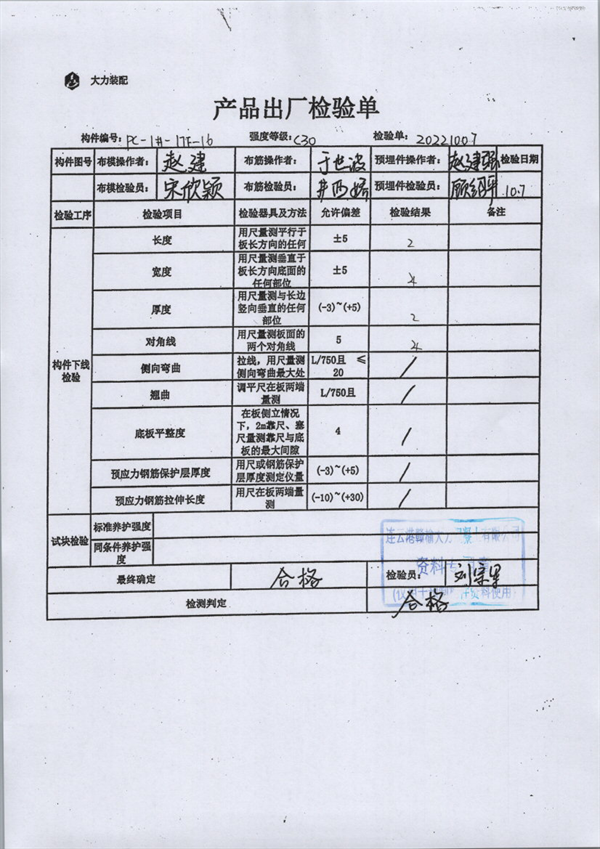 大力装配
产品出厂检验单
构件编号: PC-1#-17F-16 强度等级: C30 检验单: 20221007
构件图号 布模操作者: 赵建 布筋操作者: 预埋件操作者: 赵建强 检验日期
布模检验员: 宋欣颖 布筋检验员: 预埋件检验员: 10.7
检验工序 检验项目 检验器具及方法 允许偏差 检验结果 备注
构件下线检验
长度 用尺量测平行于板长方向的任何 ±5 2
宽度 用尺量测垂直于板长方向底面的任何部位 ±5
厚度 用尺量测与长边竖向垂直的任何部位 (-3)~(+5) 2
对角线 用尺量测板面的两个对角线 5
侧向弯曲 拉线,用尺量测侧向弯曲最大处 L/750且 ≤20 /
翘曲 调平尺在板两端量测 L/750且 /
底板平整度 在板侧立情况下,2m靠尺、塞尺量测靠尺与底板的最大间隙 4 /
预应力钢筋保护层厚度 用尺或钢筋保护层厚度测定仪量 (-3)~(+5) /
预应力钢筋拉伸长度 用尺在板两端量测 (-10)~(+30) /
试块检验 标准养护强度
同条件养护强度
最终确定 合格 检验员:
检测判定 合格